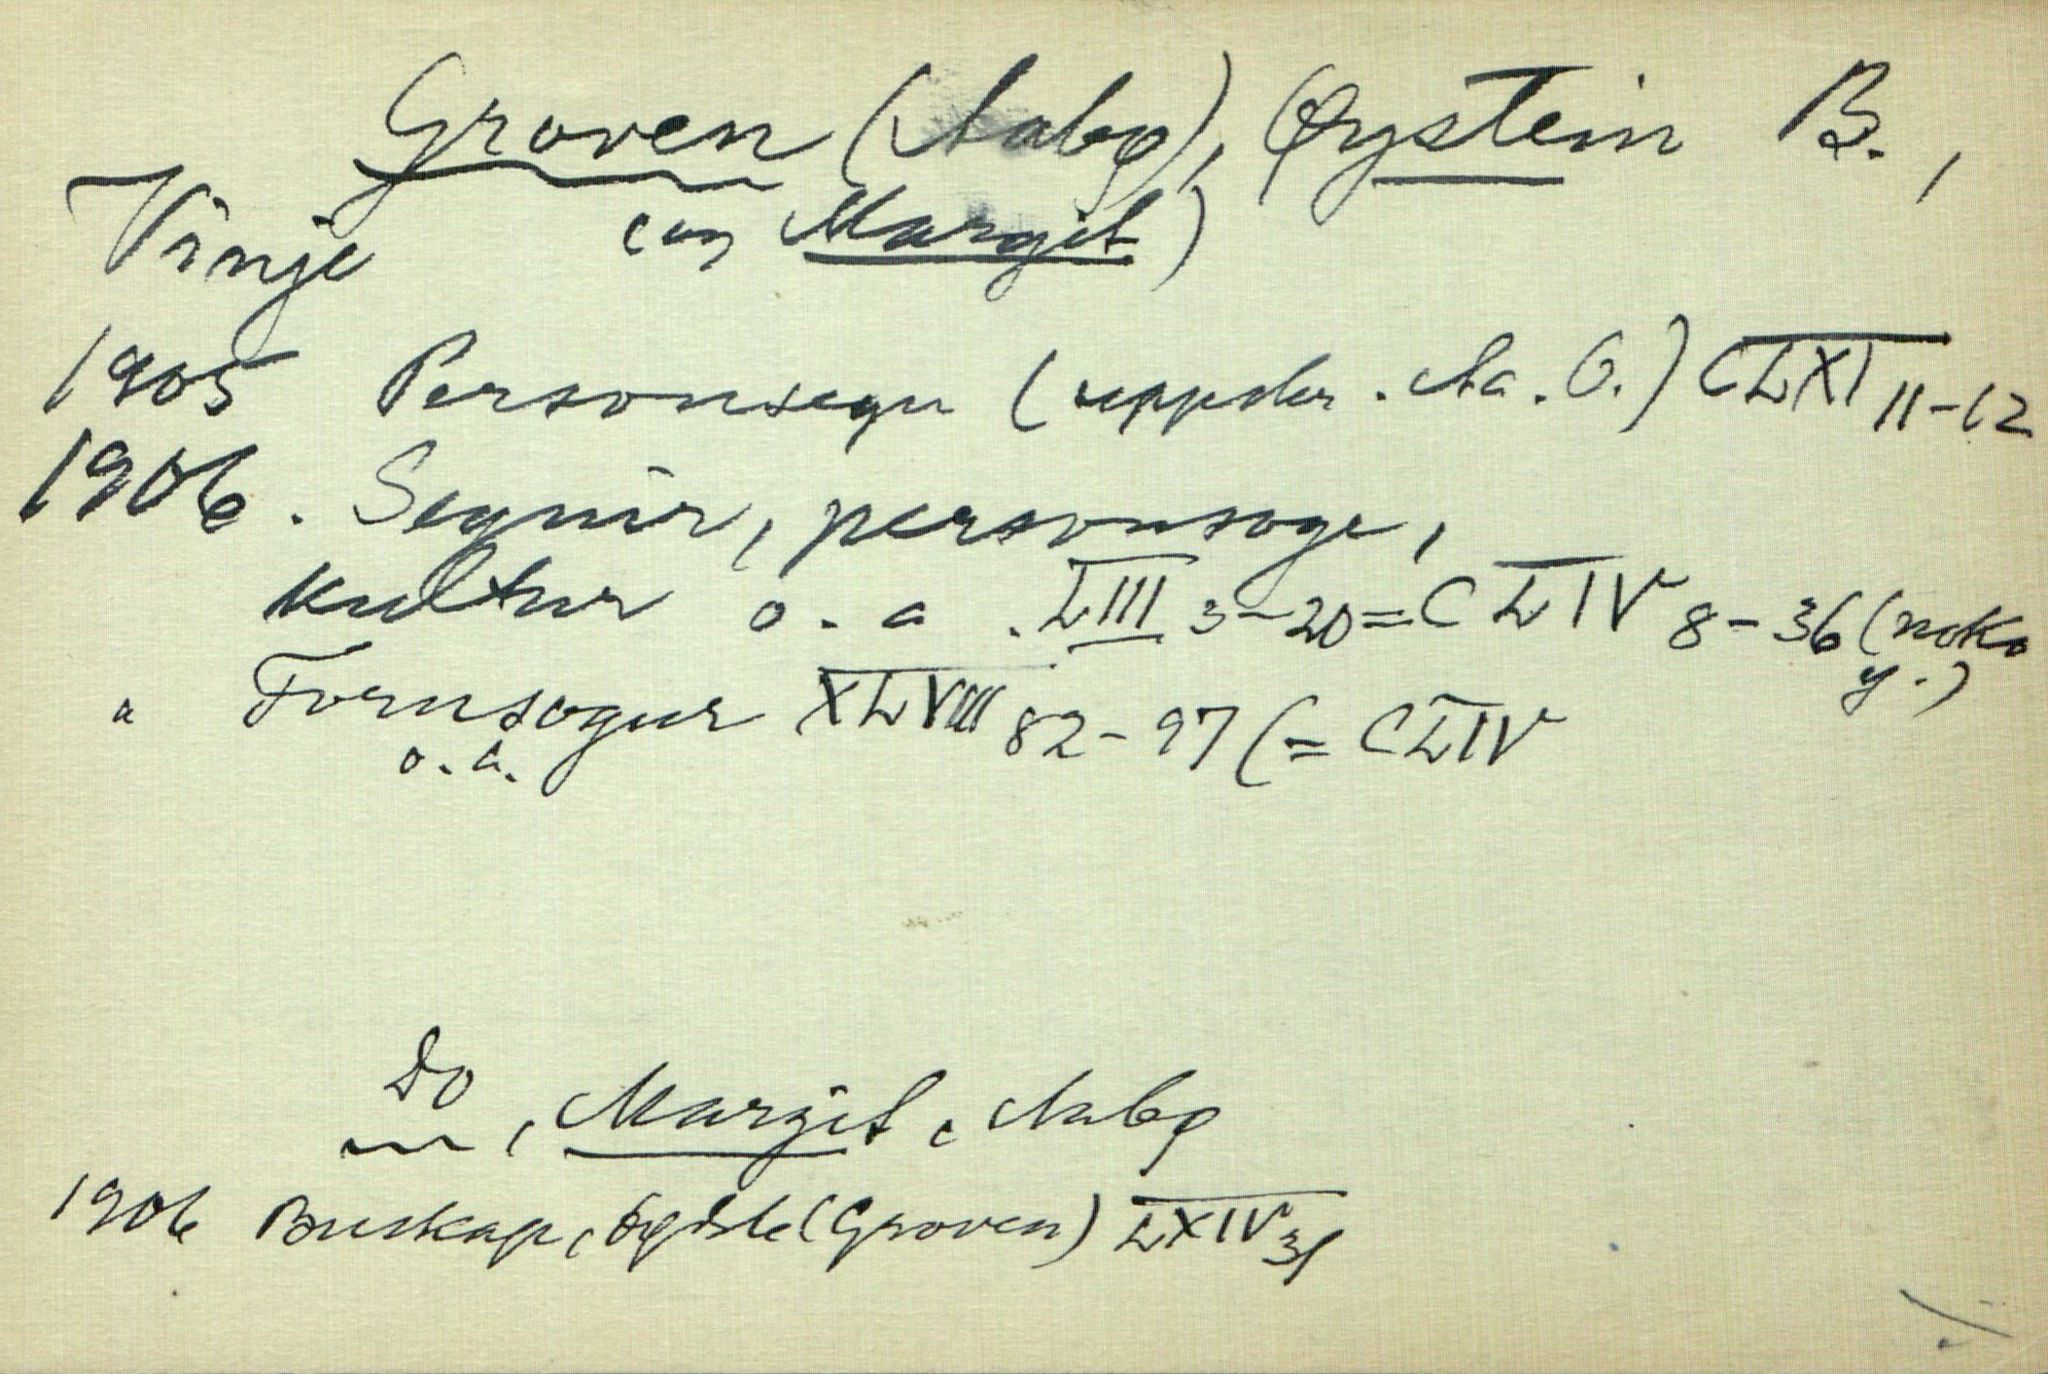 Groven (Aabø), Øystein B.,
Vinje (og Margit)
1905 Personsegn (uppskr. Aa. O.) CLXI 11-12
1906. Segnir, personsoge,
kultur o. a. LIII 3-20 = CLIV 8-36 (noko
y.)
" Fornsogur XLVIII 82-97 (= CLIV
o. a.
Do, Margit, Aabø
1906 Buskap, (Groven) LXIV 31